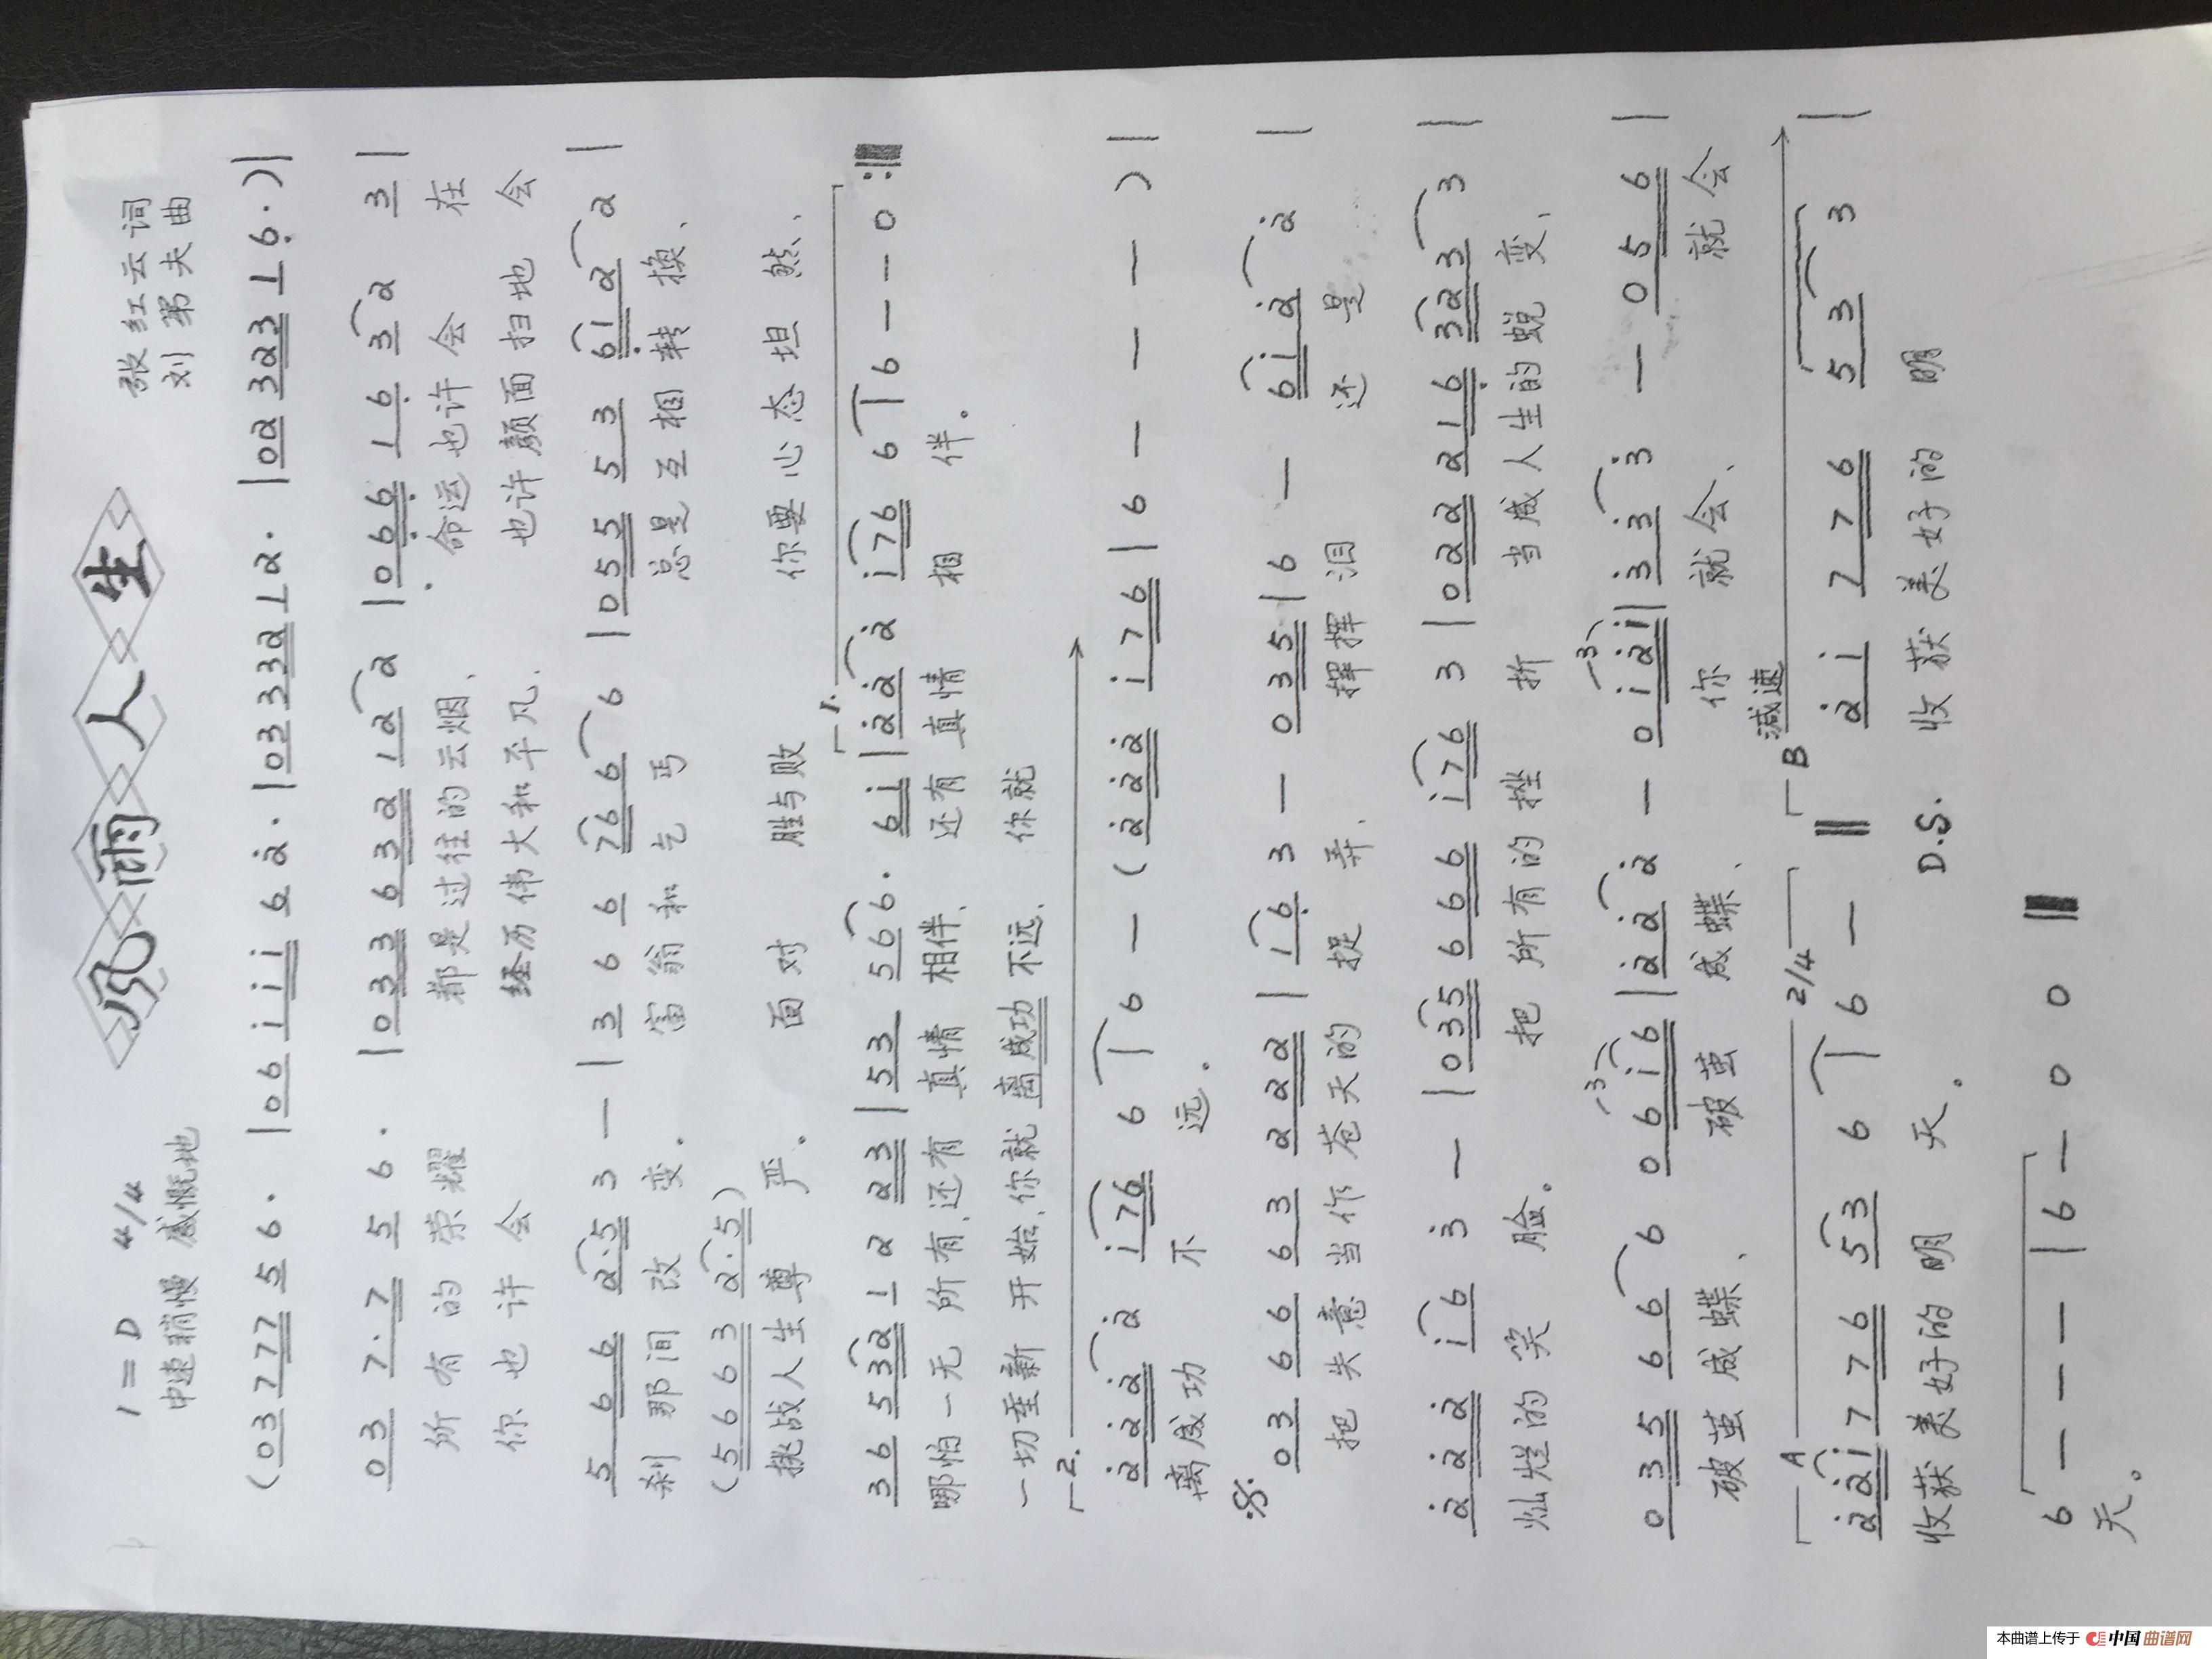 风雨人生
1=D 4/4
中速稍慢 感慨地
张红云词
刘第夫曲
(03 777 56· |06 iii 62· |03332 12· |02323 16·)|
03 7·7 56· |033 632 122 |066 16 32 3|
所有的荣耀 都是过往的云烟、 命运也许会在
你也许会 经历伟大和平凡、 也许颜面扫地会
5 66 2·5 3 — |3 6 6 6 766 6 |055 53 612 2|
刹那间改变. 富翁和乞丐 总是互相转换、
(5663 2·5)
挑战人生尊严. 面对胜与败 你要心态坦然、
36 5321 2 23 |53 566· 6i |222 i76 6 |6 — — 0 :‖
哪怕一无所有、还有真情相伴、还有真情相伴。
一切重新开始、你就离成功不远、你就
2. 2222 i76 6 |6 — (222 i76 |6 — — — )|
离成功不远。
03 66 63 222 | 16 3 — 035 |6 — 6i2 2|
把失意当作苍天的捉弄、挥挥泪还是
222 i6 3 — |035 6666 i76 3 |022 216 323 3|
灿烂的笑脸。 把所有的挫折 当成人生的蜕变、
035 666 06i6 |222 — 0i2i |333 — 0566|
破茧成蝶、破茧成蝶、你就会、就会
A 2/4 减速 B
22i 776 53 6 |6 — ‖ 2i 776 53 3|
收获美好的明天。 D.S. 收获美好的明
6 — — — |6 — 0 0 ‖
天。
本曲谱上传于 中国曲谱网